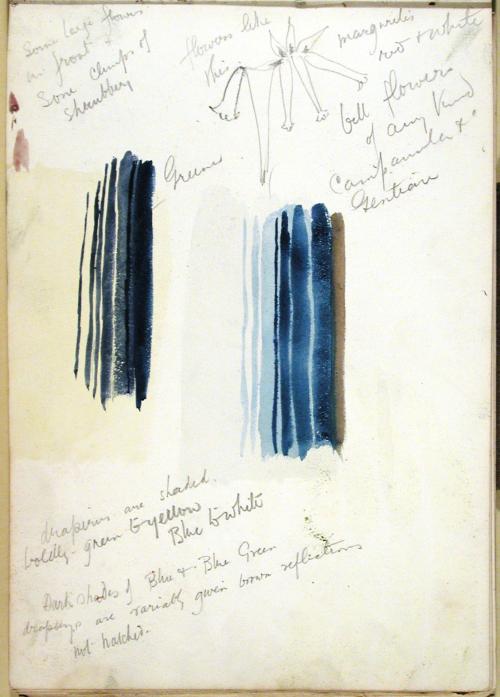 Some large flowers
in front &
Some clumps of
shrubbery
flowers like
this
margarites
red & white
bell flowers
of any kind
campanula &
Gentian
Greens
draperies are shaded
boldly - green to yellow
Blue to white
Dark shades of Blue & Blue Green
draperys are variably given brown reflections
not hatched.